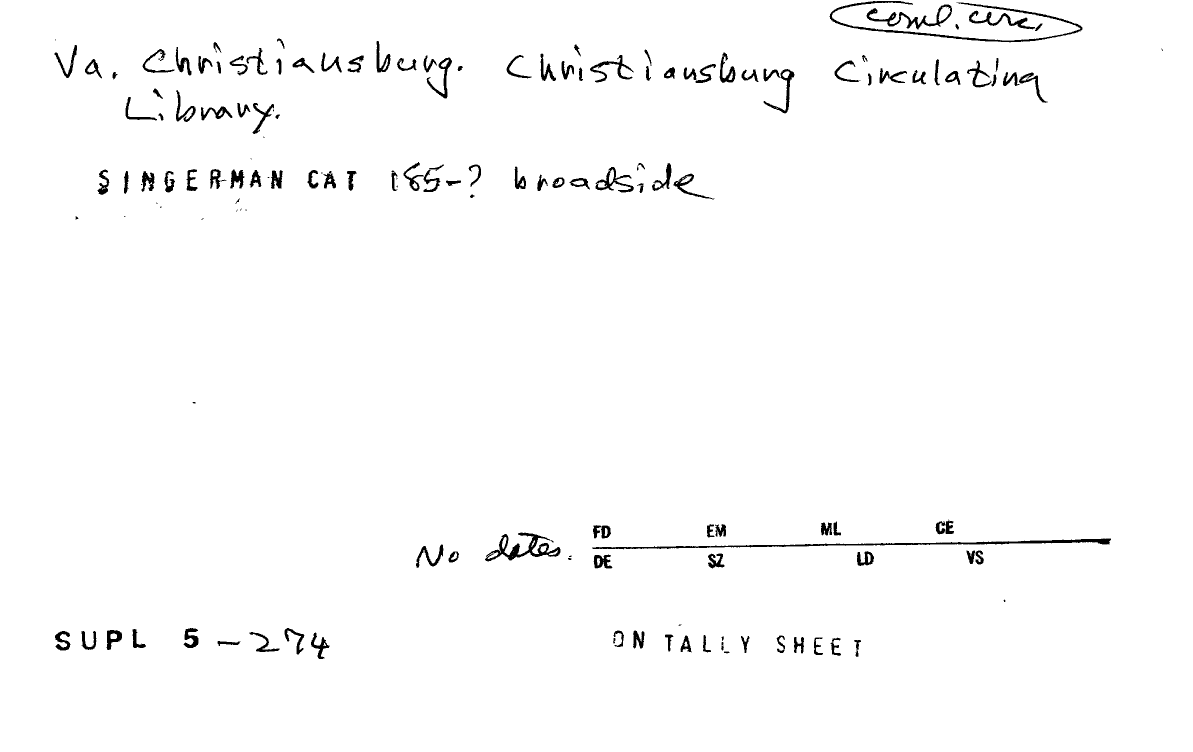 coml. circ.
Va. Christiansburg. Christiansburg Circulating
Library.
SINGERMAN CAT 185-? broadside
FD EM ML CE
No dates. DE SZ LD VS
SUPL 5-274 ON TALLY SHEET